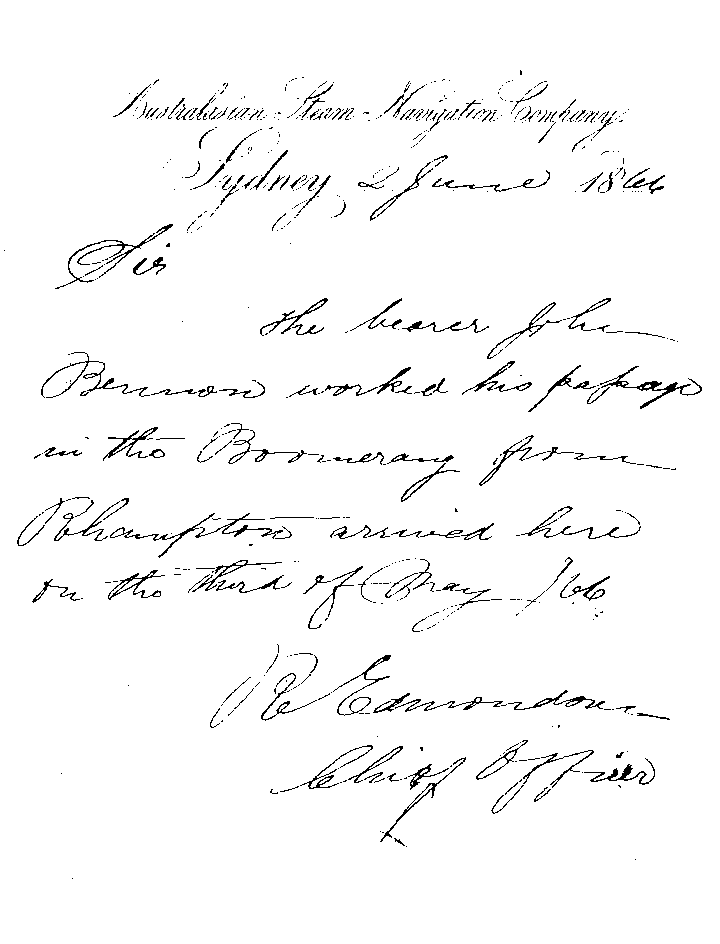 Australasian Steam Navigation Company.
Sydney, 2 June 1866
Sir
the bearer John
Bennson worked his passage
in the Boomerang from
Rhampton arrived here
on the third of May /66.
R Edmondson
Chief Officer